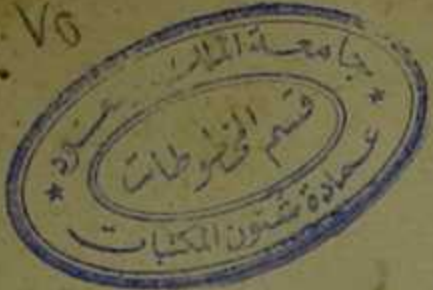 ٧٥
جامعة الملك سعود
قسم المخطوطات
عمادة شئون المكتبات